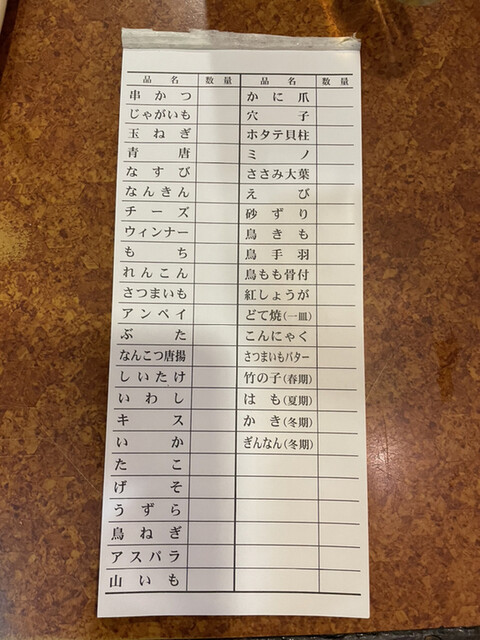 品名 数量
串かつ
じゃがいも
玉ねぎ
青唐
なすび
なんきん
チーズ
ウィンナー
もち
れんこん
さつまいも
アンペイ
ぶた
なんこつ唐揚
しいたけ
いわし
キス
いか
たこ
げそ
うずら
鳥ねぎ
アスパラ
山いも
品名 数量
かに爪
穴子
ホタテ貝柱
ミノ
ささみ大葉
えび
砂ずり
鳥きも
鳥手羽
鳥もも骨付
紅しょうが
どて焼(一皿)
こんにゃく
さつまいもバター
竹の子(春期)
はも(夏期)
かき(冬期)
ぎんなん(冬期)